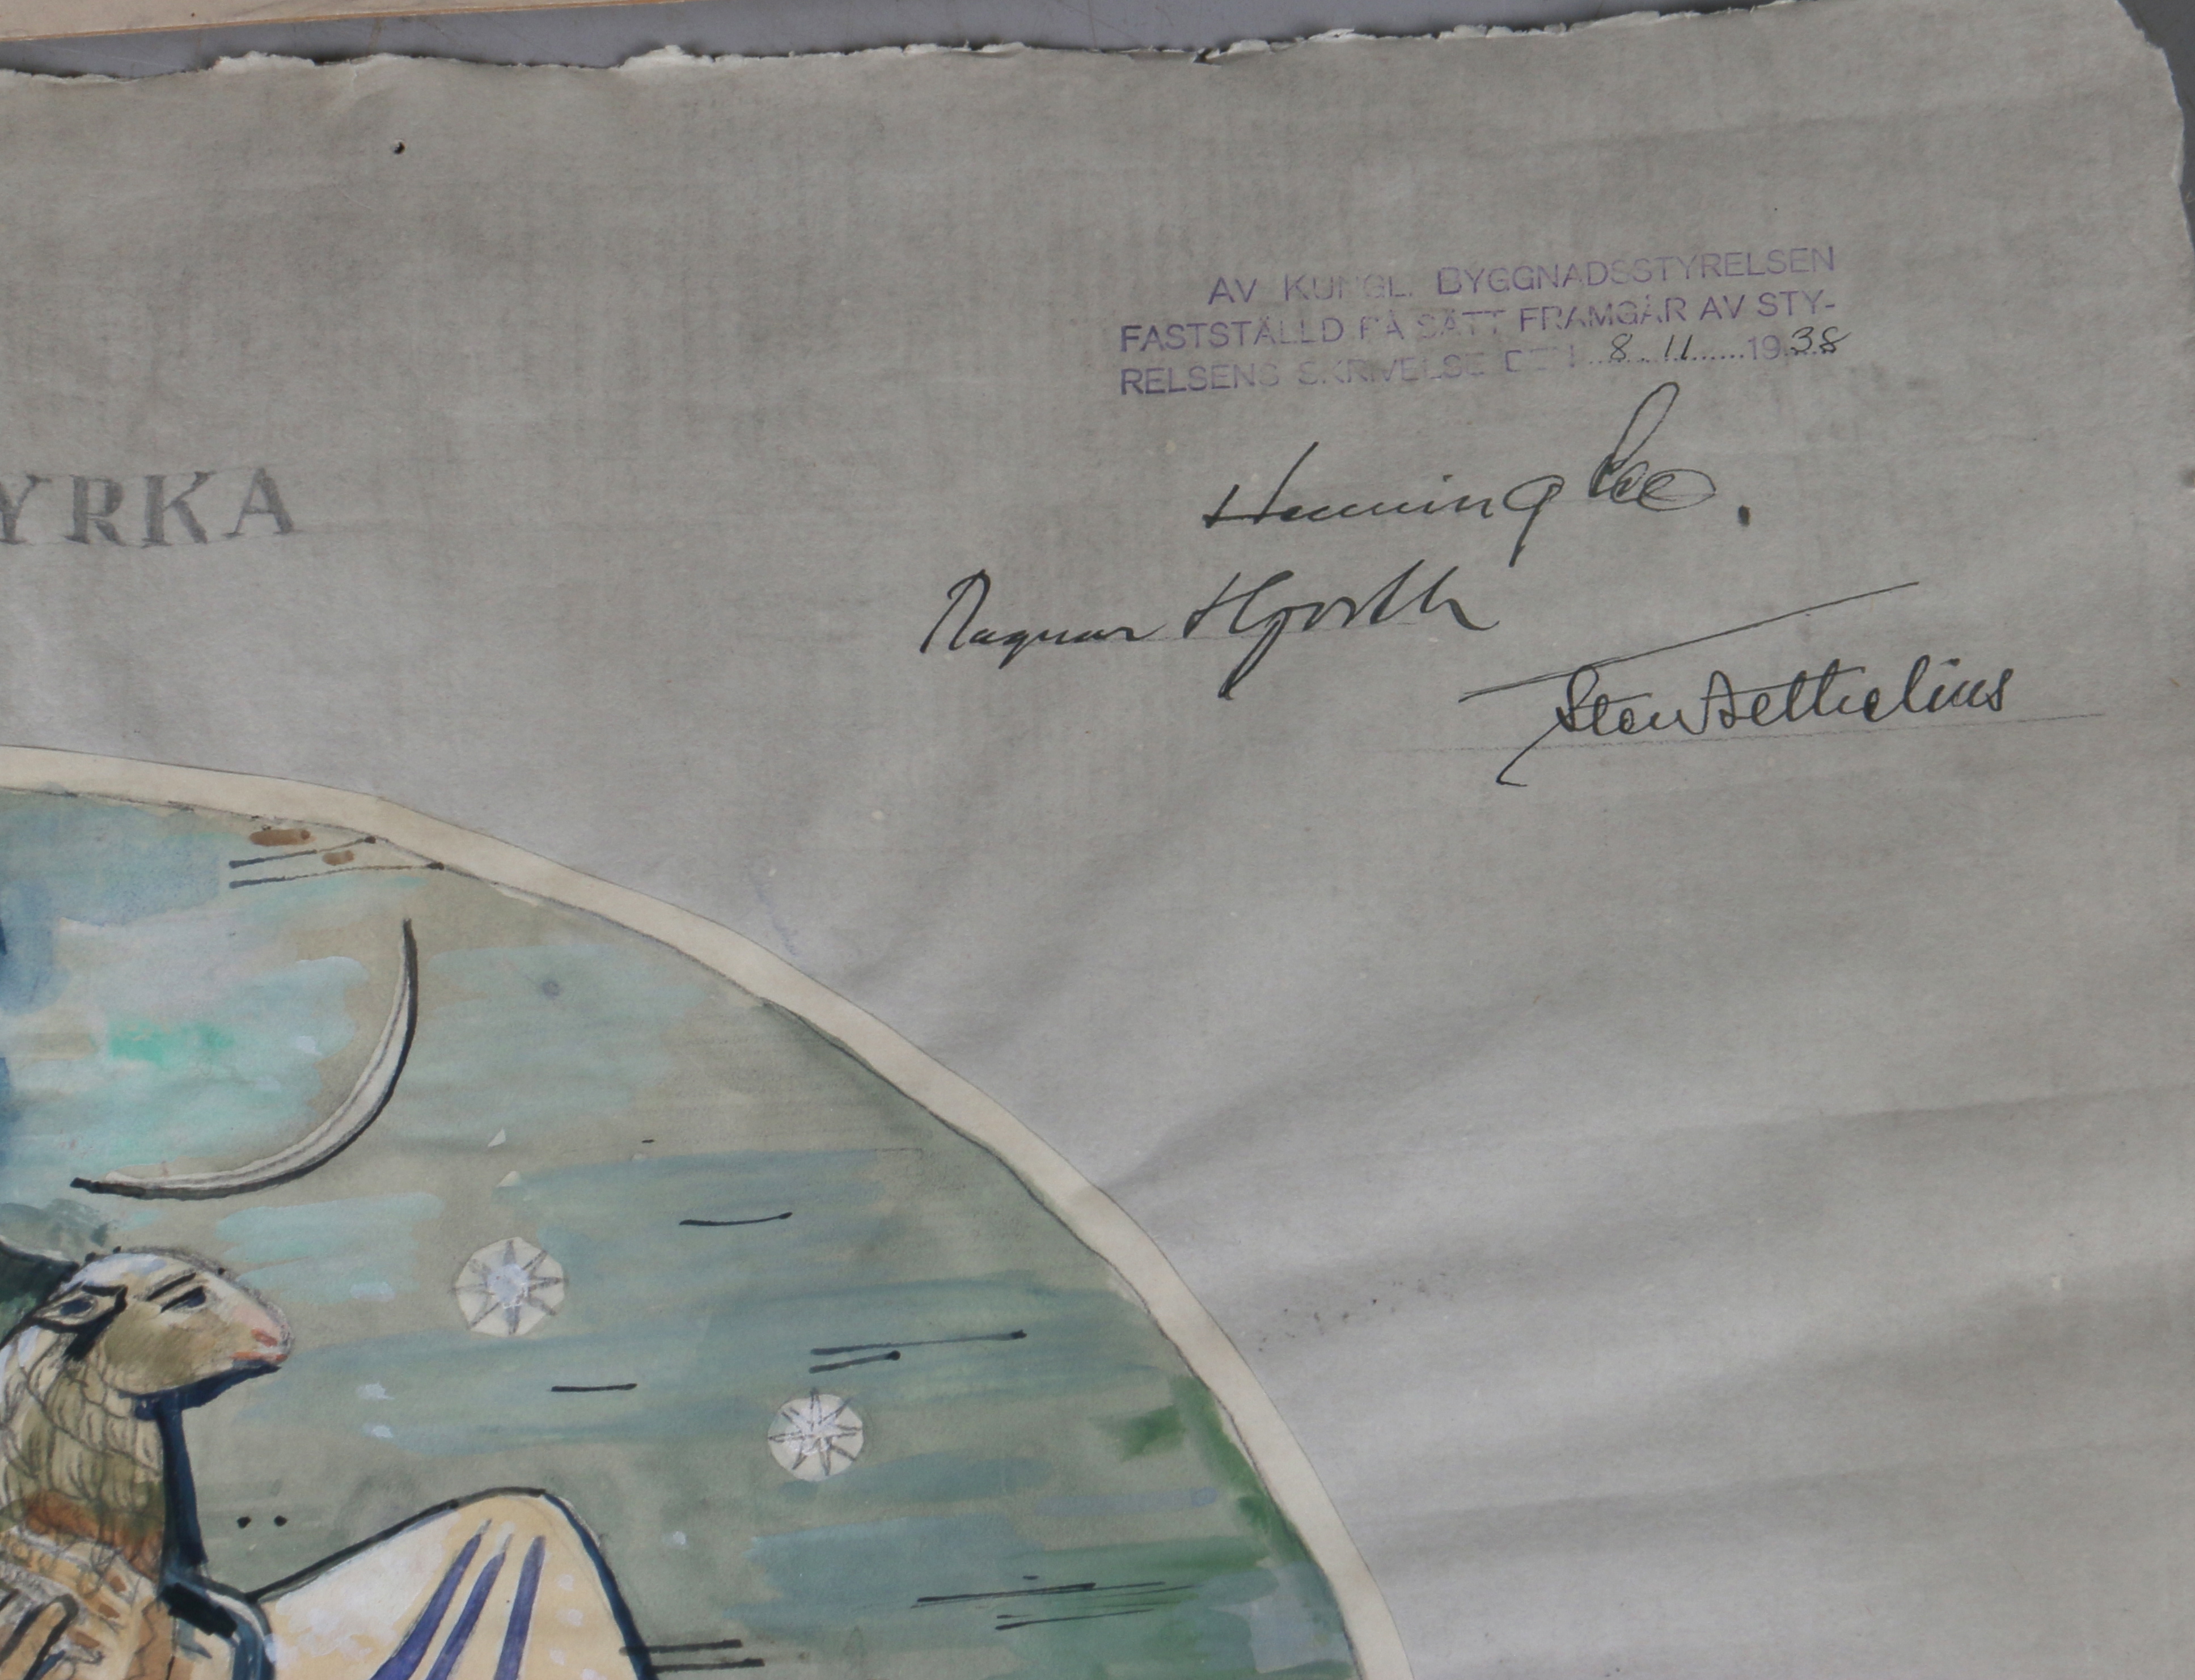 AV KUNGL. BYGGNADSSTYRELSEN
FASTSTÄLLD PÅ SÄTT FRAMGÅR AV STY-
RELSENS SKRIVELSE DEN 8.11 1938
YRKA
Henning
Ragnar Hjorth
Sten